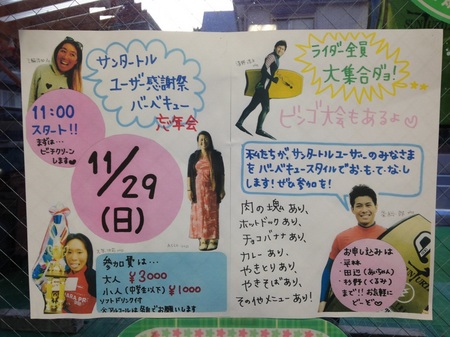 サンタートル
ユーザー感謝祭
バーベキュー
忘年会
11:00
スタート!!
まずは…
ビーチクリーン
します♥
11/29
(日)
参加費は…
大人 ¥3000
小人(中学生以下) ¥1000
ソフトドリンク付
※アルコールは各自でお願いします
ライダー全員
大集合ダヨ!
ビンゴ大会もあるよ♡
私たちが、サンタートルユーザーのみなさま
を バーベキュースタイルでお・も・て・な・し
します!ぜひ参加を!
肉の塊あり、
ホットドックあり、
チョコバナナあり、
カレーあり、
やきとりあり、
やきそばあり、
その他メニューあり!
お申し込みは
・平林
・田辺(あっちゃん)
・杉野(くるみ)
まで!!お気軽に
どーぞ♡